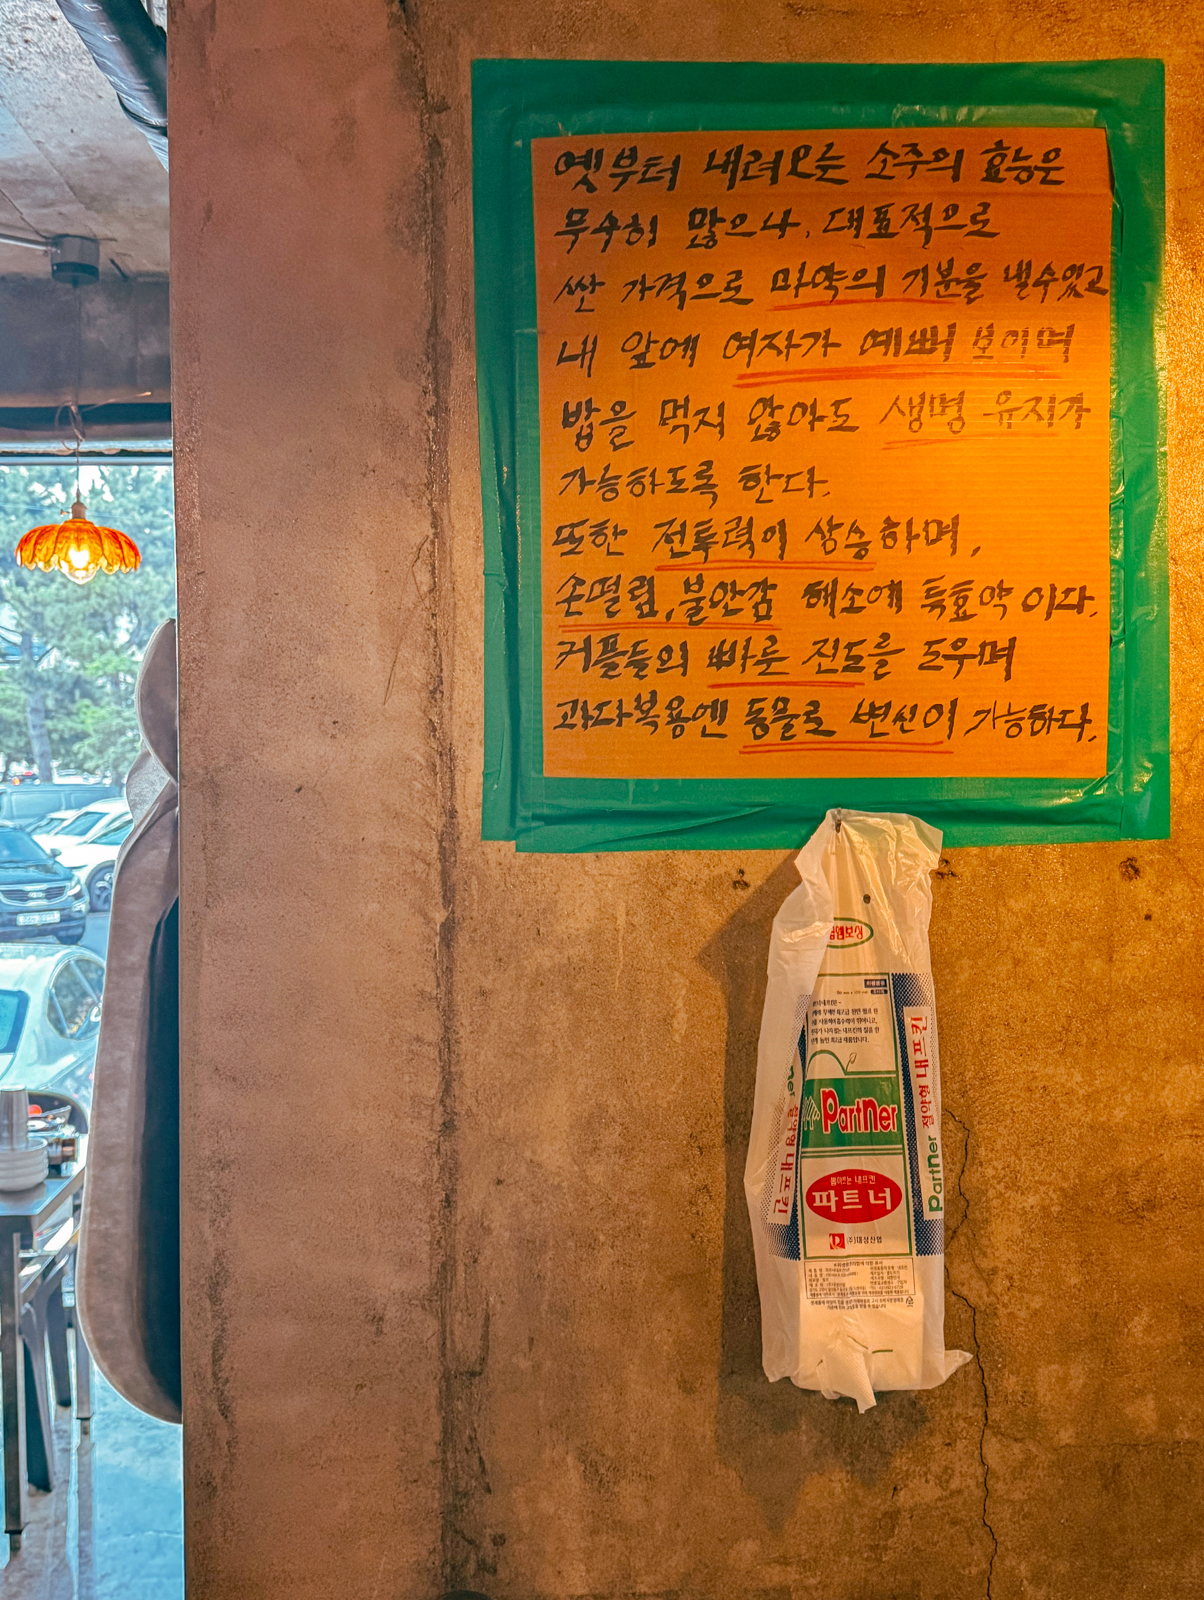 옛부터 내려오는 소주의 효능은
무수히 많으나, 대표적으로
싼 가격으로 마약의 기분을 낼수있고
내 앞에 여자가 예뻐 보이며
밥을 먹지 않아도 생명 유지가
가능하도록 한다.
또한 전투력이 상승하며,
손떨림, 불안감 해소에 특효약 이다.
커플들의 빠른 진도를 도우며
과다복용엔 동물로 변신이 가능하다.
엠보싱
Partner
파트너
(주)대성산업
절약형 내프킨
Partner
절약형 내프킨